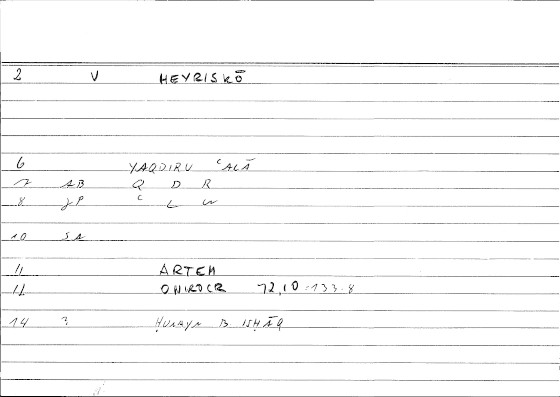 2 V HEYRISKŌ
6 YAQDIRU ʿALĀ
7 AB Q D R
8 JP ʿ L W
10 SA
11 ARTEM
12 ONIROCR 12,10-133.8
14 ? ḤUNAYN B ISḤĀQ